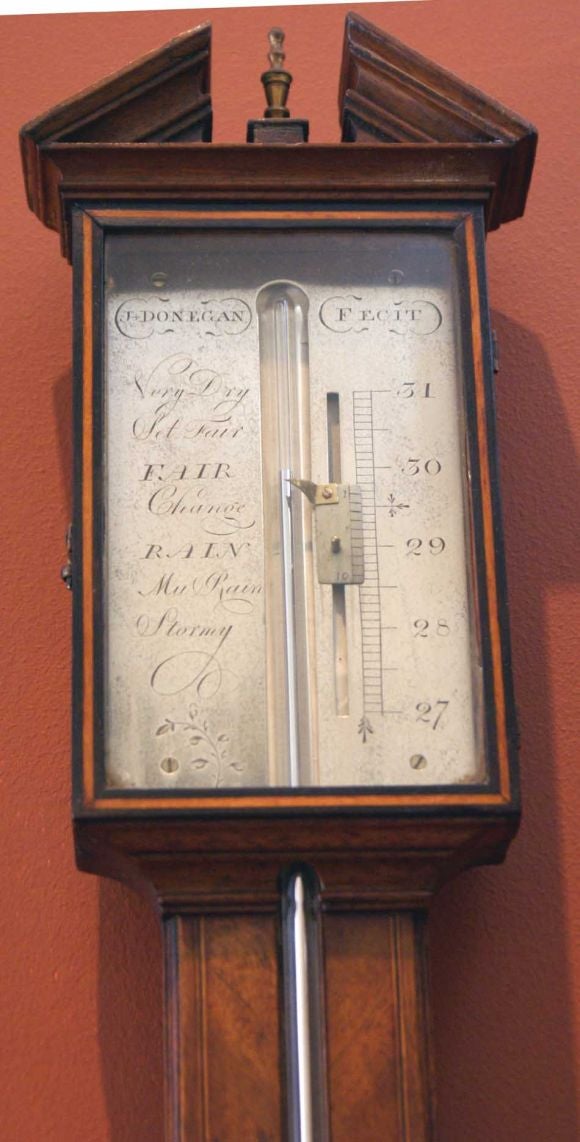 J. DONEGAN
FECIT
Very Dry
Set Fair
FAIR
Change
RAIN
Mu Rain
Stormy
31
30
29
28
27
1
10